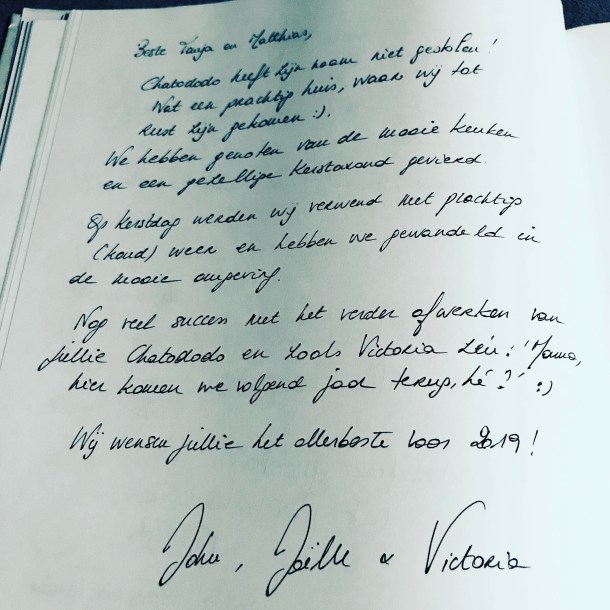 Beste Tanja en Matthias,
Chatododo heeft zijn naam niet gestolen!
Wat een prachtig huis, waar wij tot
rust zijn gekomen :).
We hebben genoten van de mooie keuken
en een gezellige kerstavond gevierd.
Op kerstdag werden wij verwend met prachtig
(koud) weer en hebben we gewandeld in
de mooie omgeving.
Nog veel succes met het verder afwerken van
jullie Chatododo en zoals Victoria zei: 'Mama,
hier komen we volgend jaar terug, hé?' :)
Wij wensen jullie het allerbeste voor 2019!
John, Joëlle & Victoria